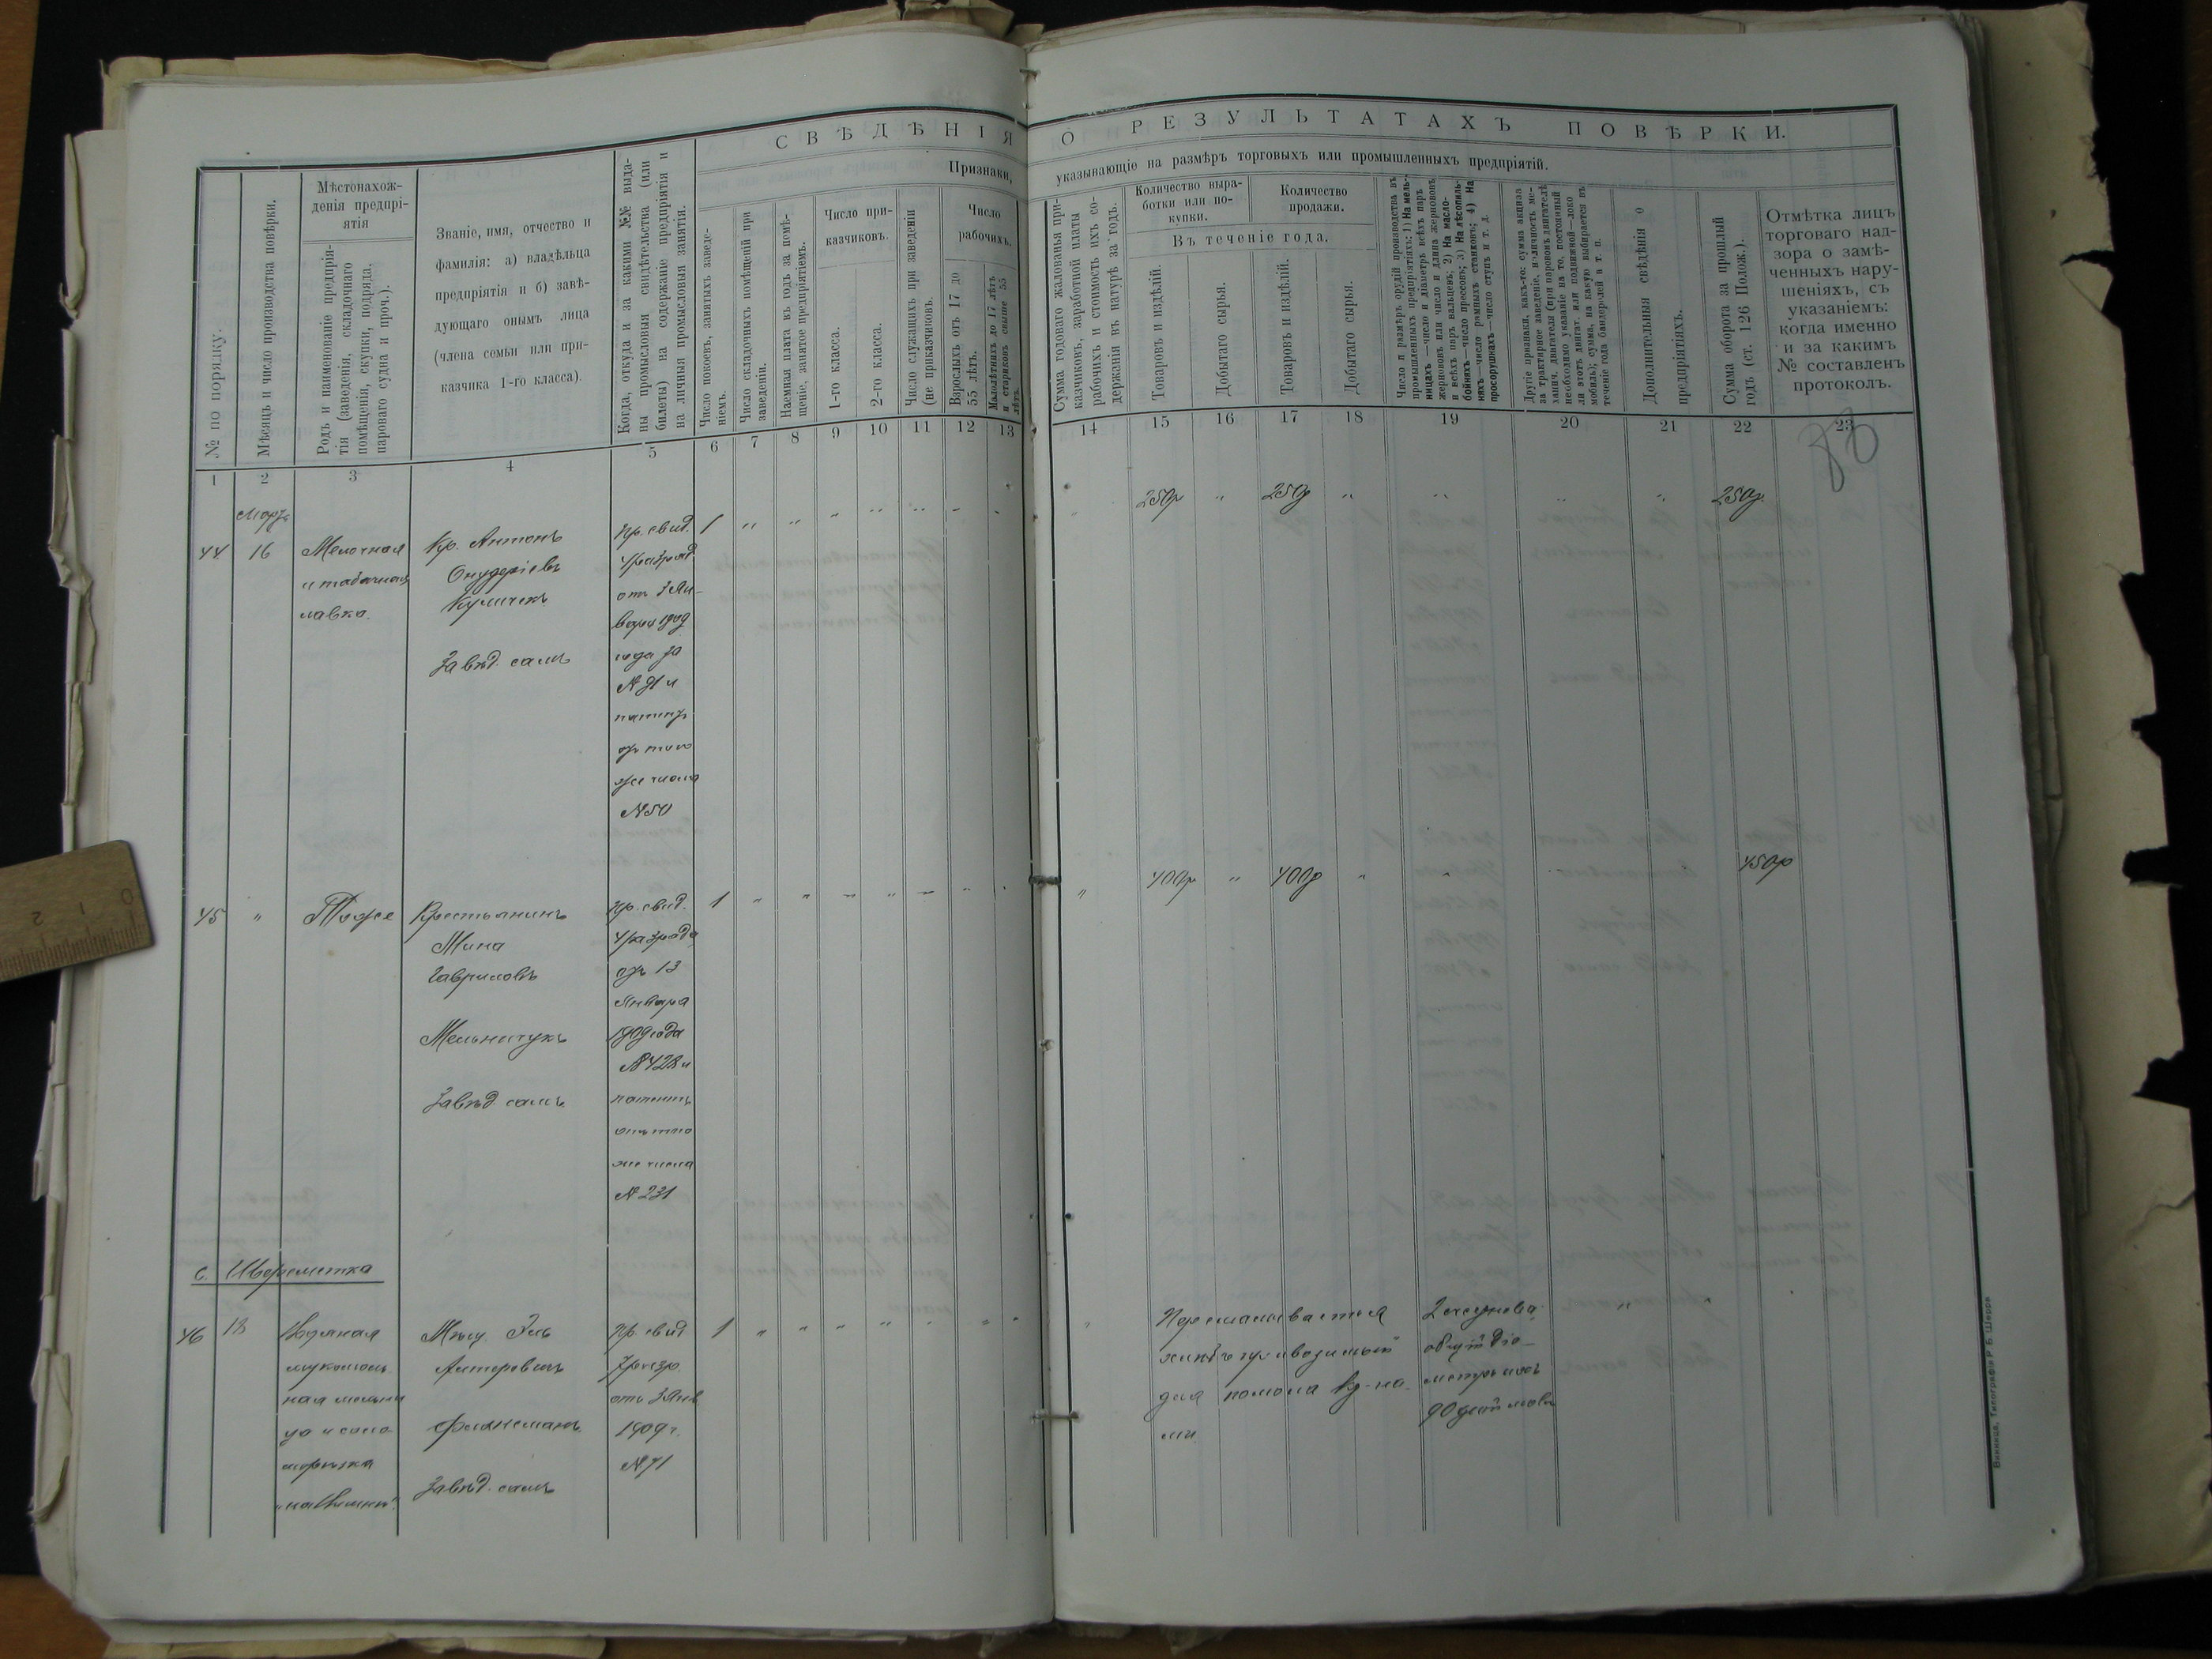 СВѢДѢНІЯ О РЕЗУЛЬТАТАХЪ ПОВѢРКИ.
Признаки, указывающіе на размѣръ торговыхъ или промышленныхъ предпріятій.
№ по порядку.
Мѣсяцъ и число производства повѣрки.
Мѣстонахож-
денія предпрі-
ятія
Родъ и наименованіе предпрія-
тія (заведенія, складочнаго
помѣщенія, скупки, подряда,
парового судна и проч.).
Званіе, имя, отчество и
фамилія: а) владѣльца
предпріятія и б) завѣ-
дующаго онымъ лица
(члена семьи или при-
казчика 1-го класса).
Когда, откуда и за какими №№ выда-
ны промысловыя свидѣтельства (или
билеты) на содержаніе предпріятія и
на личныя промысловыя занятія.
Число покоевъ, занятыхъ заведе-
ніемъ.
Число складочныхъ помѣщеній при
заведеніи.
Наемная плата въ годъ за помѣ-
щеніе, занятое предпріятіемъ.
Число при-
казчиковъ.
1-го класса.
2-го класса.
Число служащихъ при заведеніи
(не приказчиковъ).
Число
рабочихъ.
Взрослыхъ отъ 17 до
55 лѣтъ.
Малолѣтнихъ до 17 лѣтъ
и стариковъ свыше 55
лѣтъ.
Сумма годоваго жалованья при-
казчиковъ, заработной платы
рабочихъ и стоимость ихъ со-
держанія въ натурѣ за годъ.
Количество выра-
ботки или по-
купки.
Количество
продажи.
Въ теченіе года.
Товаровъ и издѣлій.
Добытаго сырья.
Товаровъ и издѣлій.
Добытаго сырья.
Число и размѣръ орудій производства въ
промышленныхъ предпріятіяхъ: 1) На мель-
ницахъ—число и діаметръ всѣхъ паръ
жернововъ или число и длина жернововъ
и всѣхъ паръ вальцевъ; 2) На масло-
бойняхъ—число прессовъ; 3) На лѣсопиль-
няхъ—число рамныхъ станковъ; 4) На
просорушкахъ—число ступъ и т. д.
Другіе признаки, какъ-то: сумма акциза
за трактирное заведеніе, наличность ме-
ханич. двигателя (при паровомъ двигателѣ
необходимо указаніе на то, постоянный
ли этотъ двигат. или подвижной—локо
мобиль); сумма, на какую выбирается въ
теченіе года бандеролей и т. п.
Дополнительныя свѣдѣнія о
предпріятіяхъ.
Сумма оборота за прошлый
годъ (ст. 126 Полож.).
Отмѣтка лицъ
торговаго над-
зора о замѣ-
ченныхъ нару-
шеніяхъ, съ
указаніемъ:
когда именно
и за какимъ
№ составленъ
протоколъ.
1 2 3 4 5 6 7 8 9 10 11 12 13 14 15 16 17 18 19 20 21 22 23
Мартъ
44 16
Мелочная
и табачная
лавка.
Кр. Антонъ
Завѣд. самъ
Пр. свид.
4 разряд.
от 3 Ян-
варя 1909
года за
№ 91 и
патентъ
отъ того
же числа
№ 50
1
250р " 250р " 250р.
45 "
Тоже
Крестьянинъ
Мина
Гавриловъ
Мельничукъ
Завѣд. самъ
Пр. свид.
4 разряда
отъ 13
Января
1909 года
№ 428 и
патентъ
отъ того
же числа
№ 231
1
400р " 400р " 450р
с. Шереметка
46 18
Водяная
мукомоль
ная мельни
ца
Мѣщ. Эль
Завѣд. самъ
Пр. свид
отъ 3 Янв
1909 г.
№ 71
1
Перемалывается
хлѣбъ привозимый
для помола
2
общій діа-
метръ ихъ
90 дюймовъ
Винница, Типографія Р. Б. Шерръ